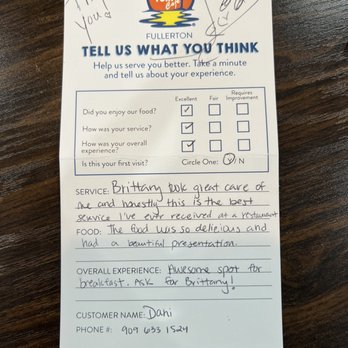 you
FULLERTON
TELL US WHAT YOU THINK
Help us serve you better. Take a minute
and tell us about your experience.
Excellent Fair Requires Improvement
Did you enjoy our food?
How was your service?
How was your overall experience?
Is this your first visit? Circle One: Y N
SERVICE: Brittany took great care of
me and honestly this is the best
service I've ever received at a restaurant
FOOD: The food was so delicious and
had a beautiful presentation.
OVERALL EXPERIENCE: Awesome spot for
breakfast. Ask for Brittany!
CUSTOMER NAME: Dani
PHONE #: 909 633 1524